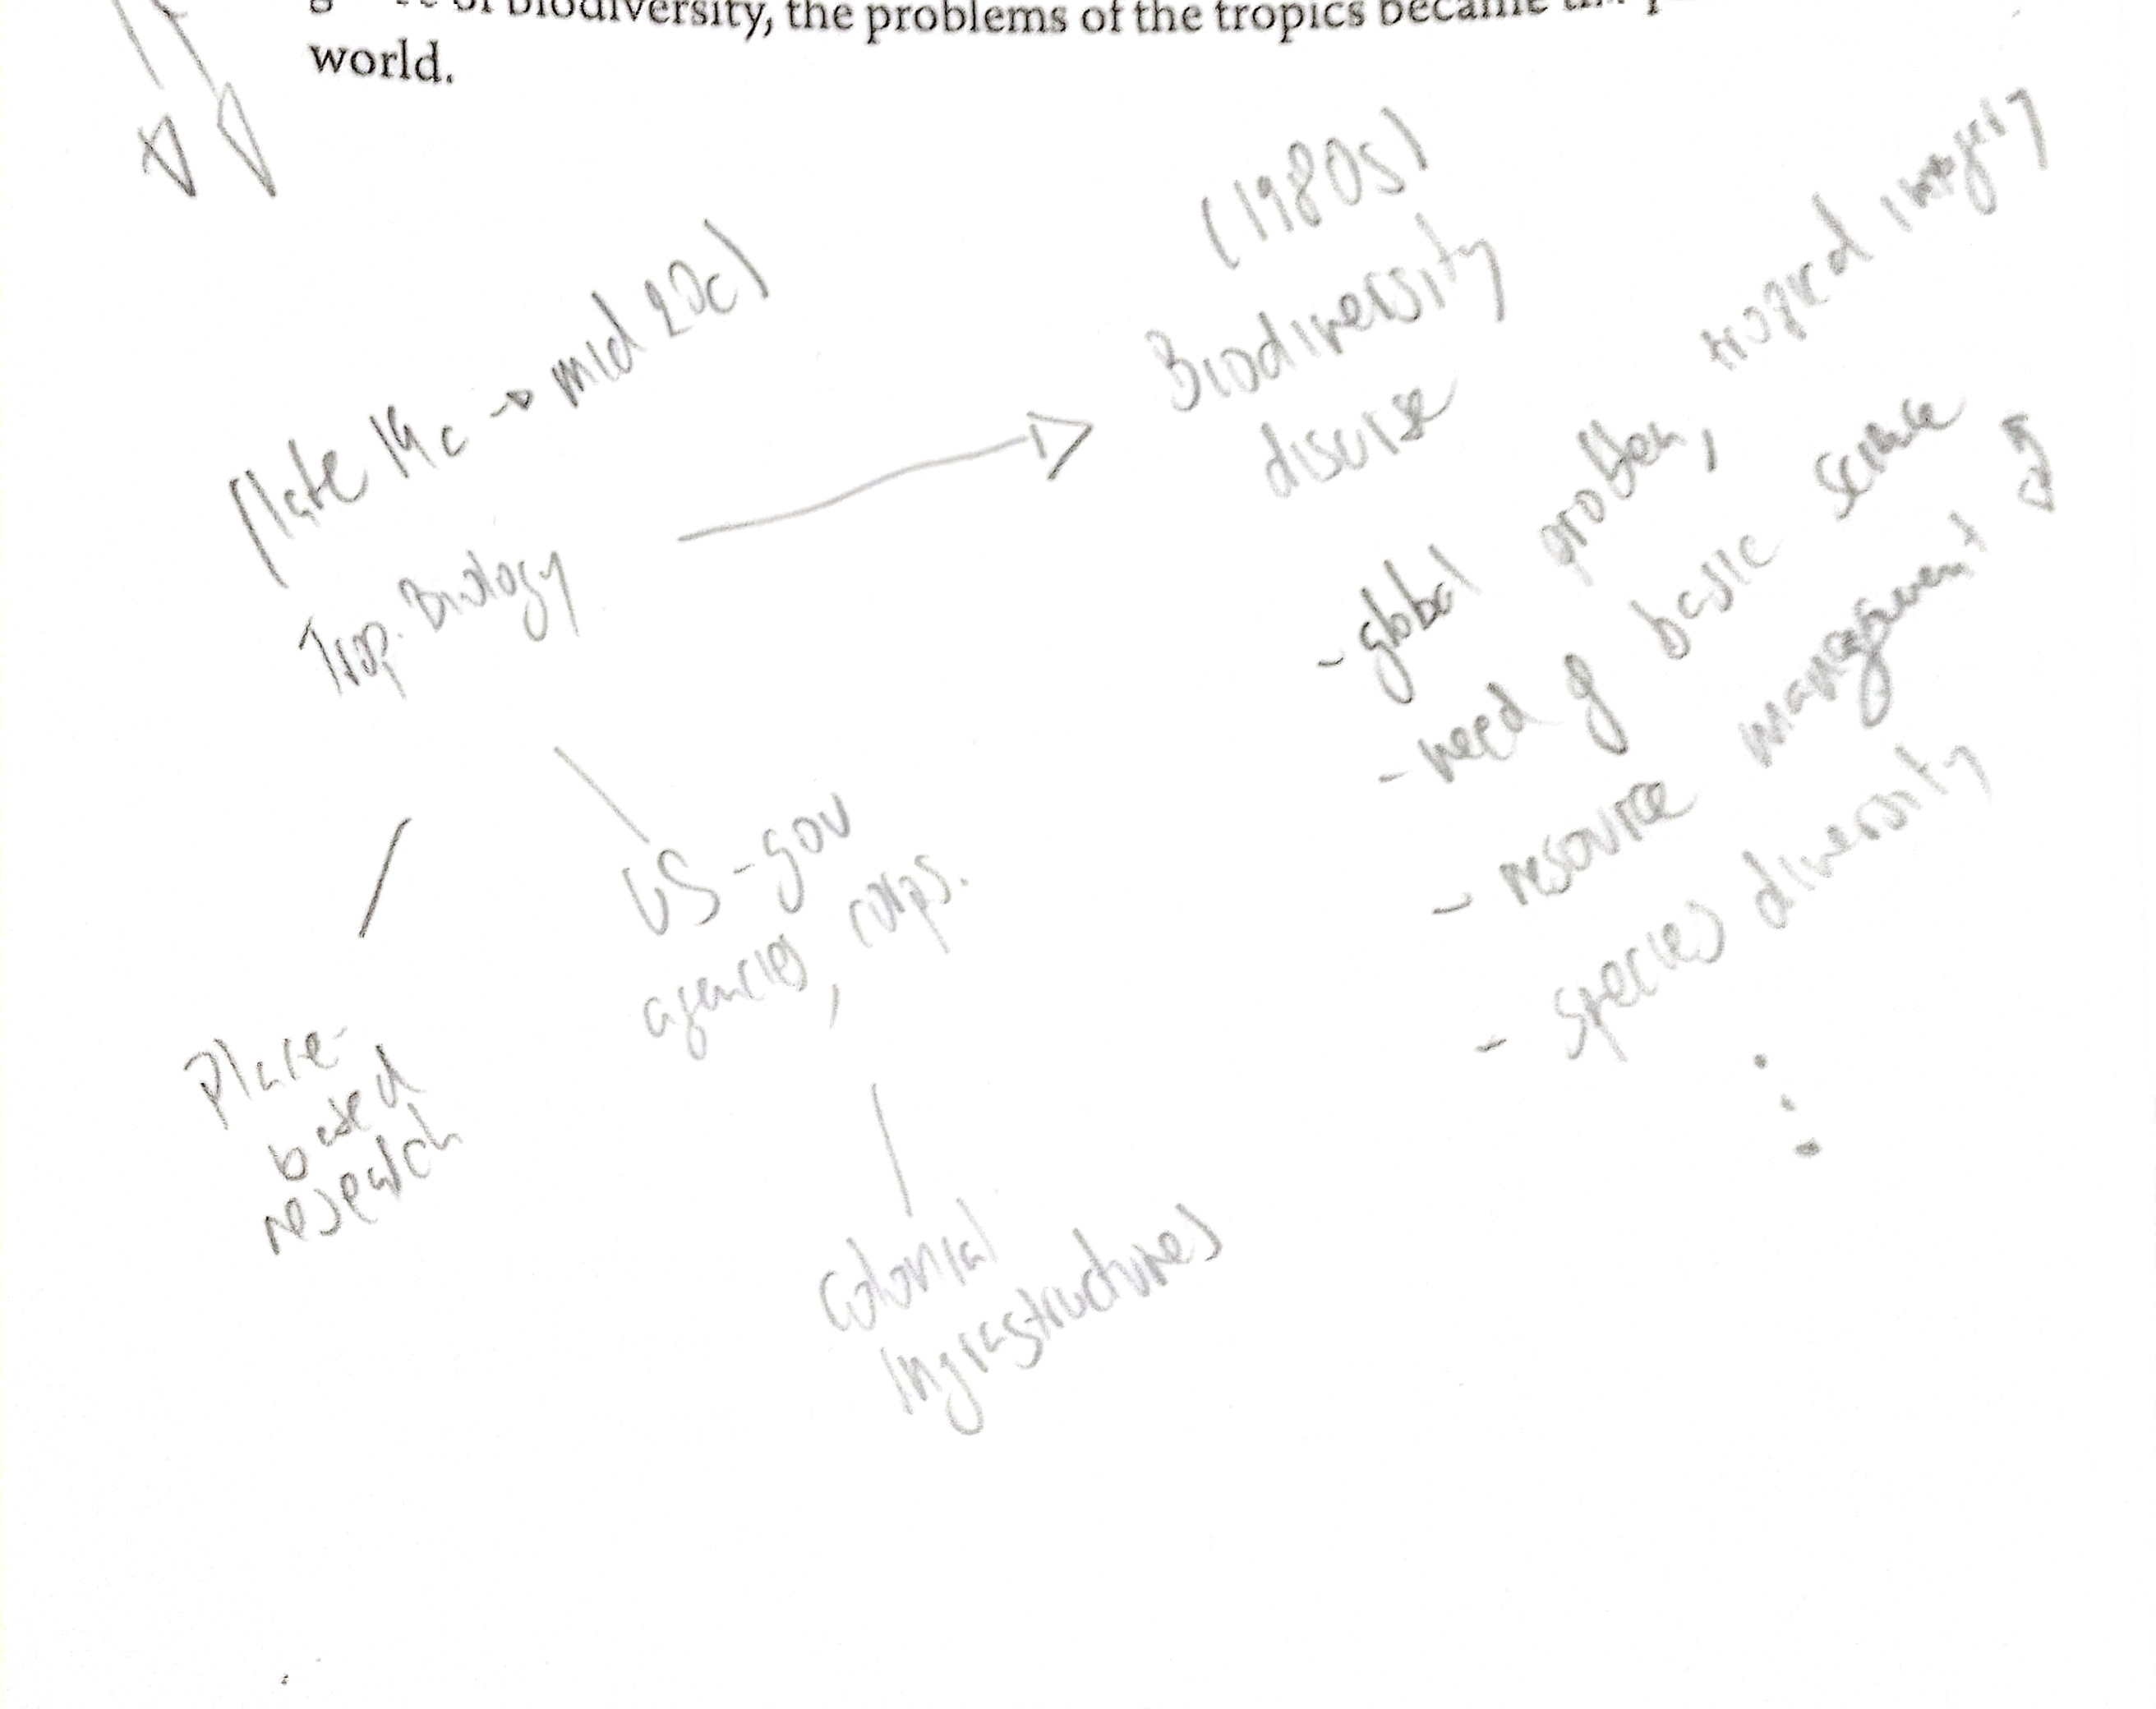 of biodiversity, the problems of the tropics became
world.
(late 19c → mid 20c)
Trop. Biology
(1980s)
Biodiversity
disourse
- global problem, tropical imagery
- need of basic science
- resource management
- species diversity
US-gov
agencies, corps.
Place-
based
research
Colonial
Infrastructures